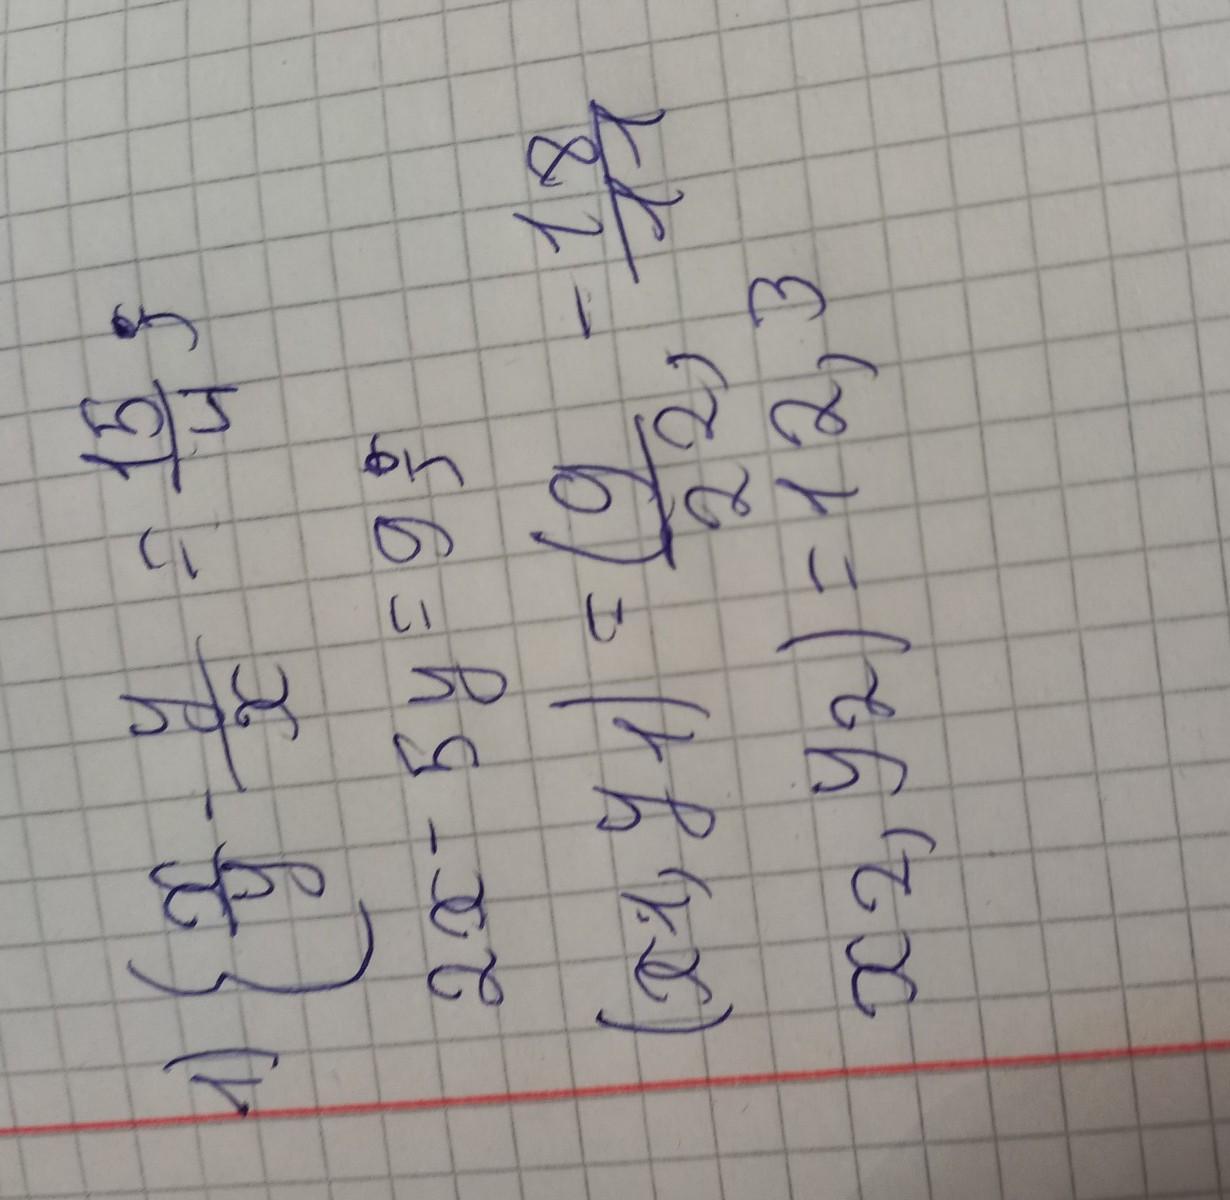 1) { x/y - y/x = 15/4;
2x - 5y = 9;
(x1, y1) = (9/22, - 18/11
x2, y2) = 12, 3